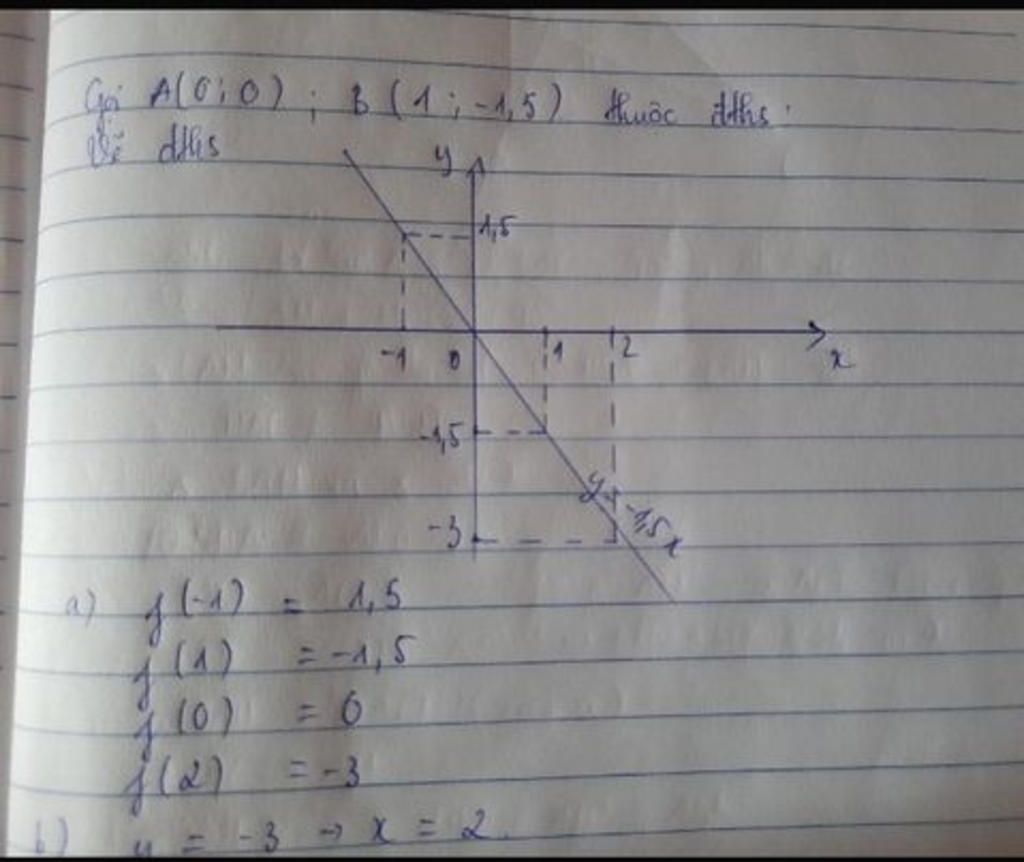 Gọi A(0;0) ; B(1;-1,5) thuộc đths.
Vẽ đths
y
1,5
-1 0 1 2 x
-1,5
y = -1,5x
-3
a) f(-1) = 1,5
f(1) = -1,5
f(0) = 0
f(2) = -3
b) y = -3 → x = 2.